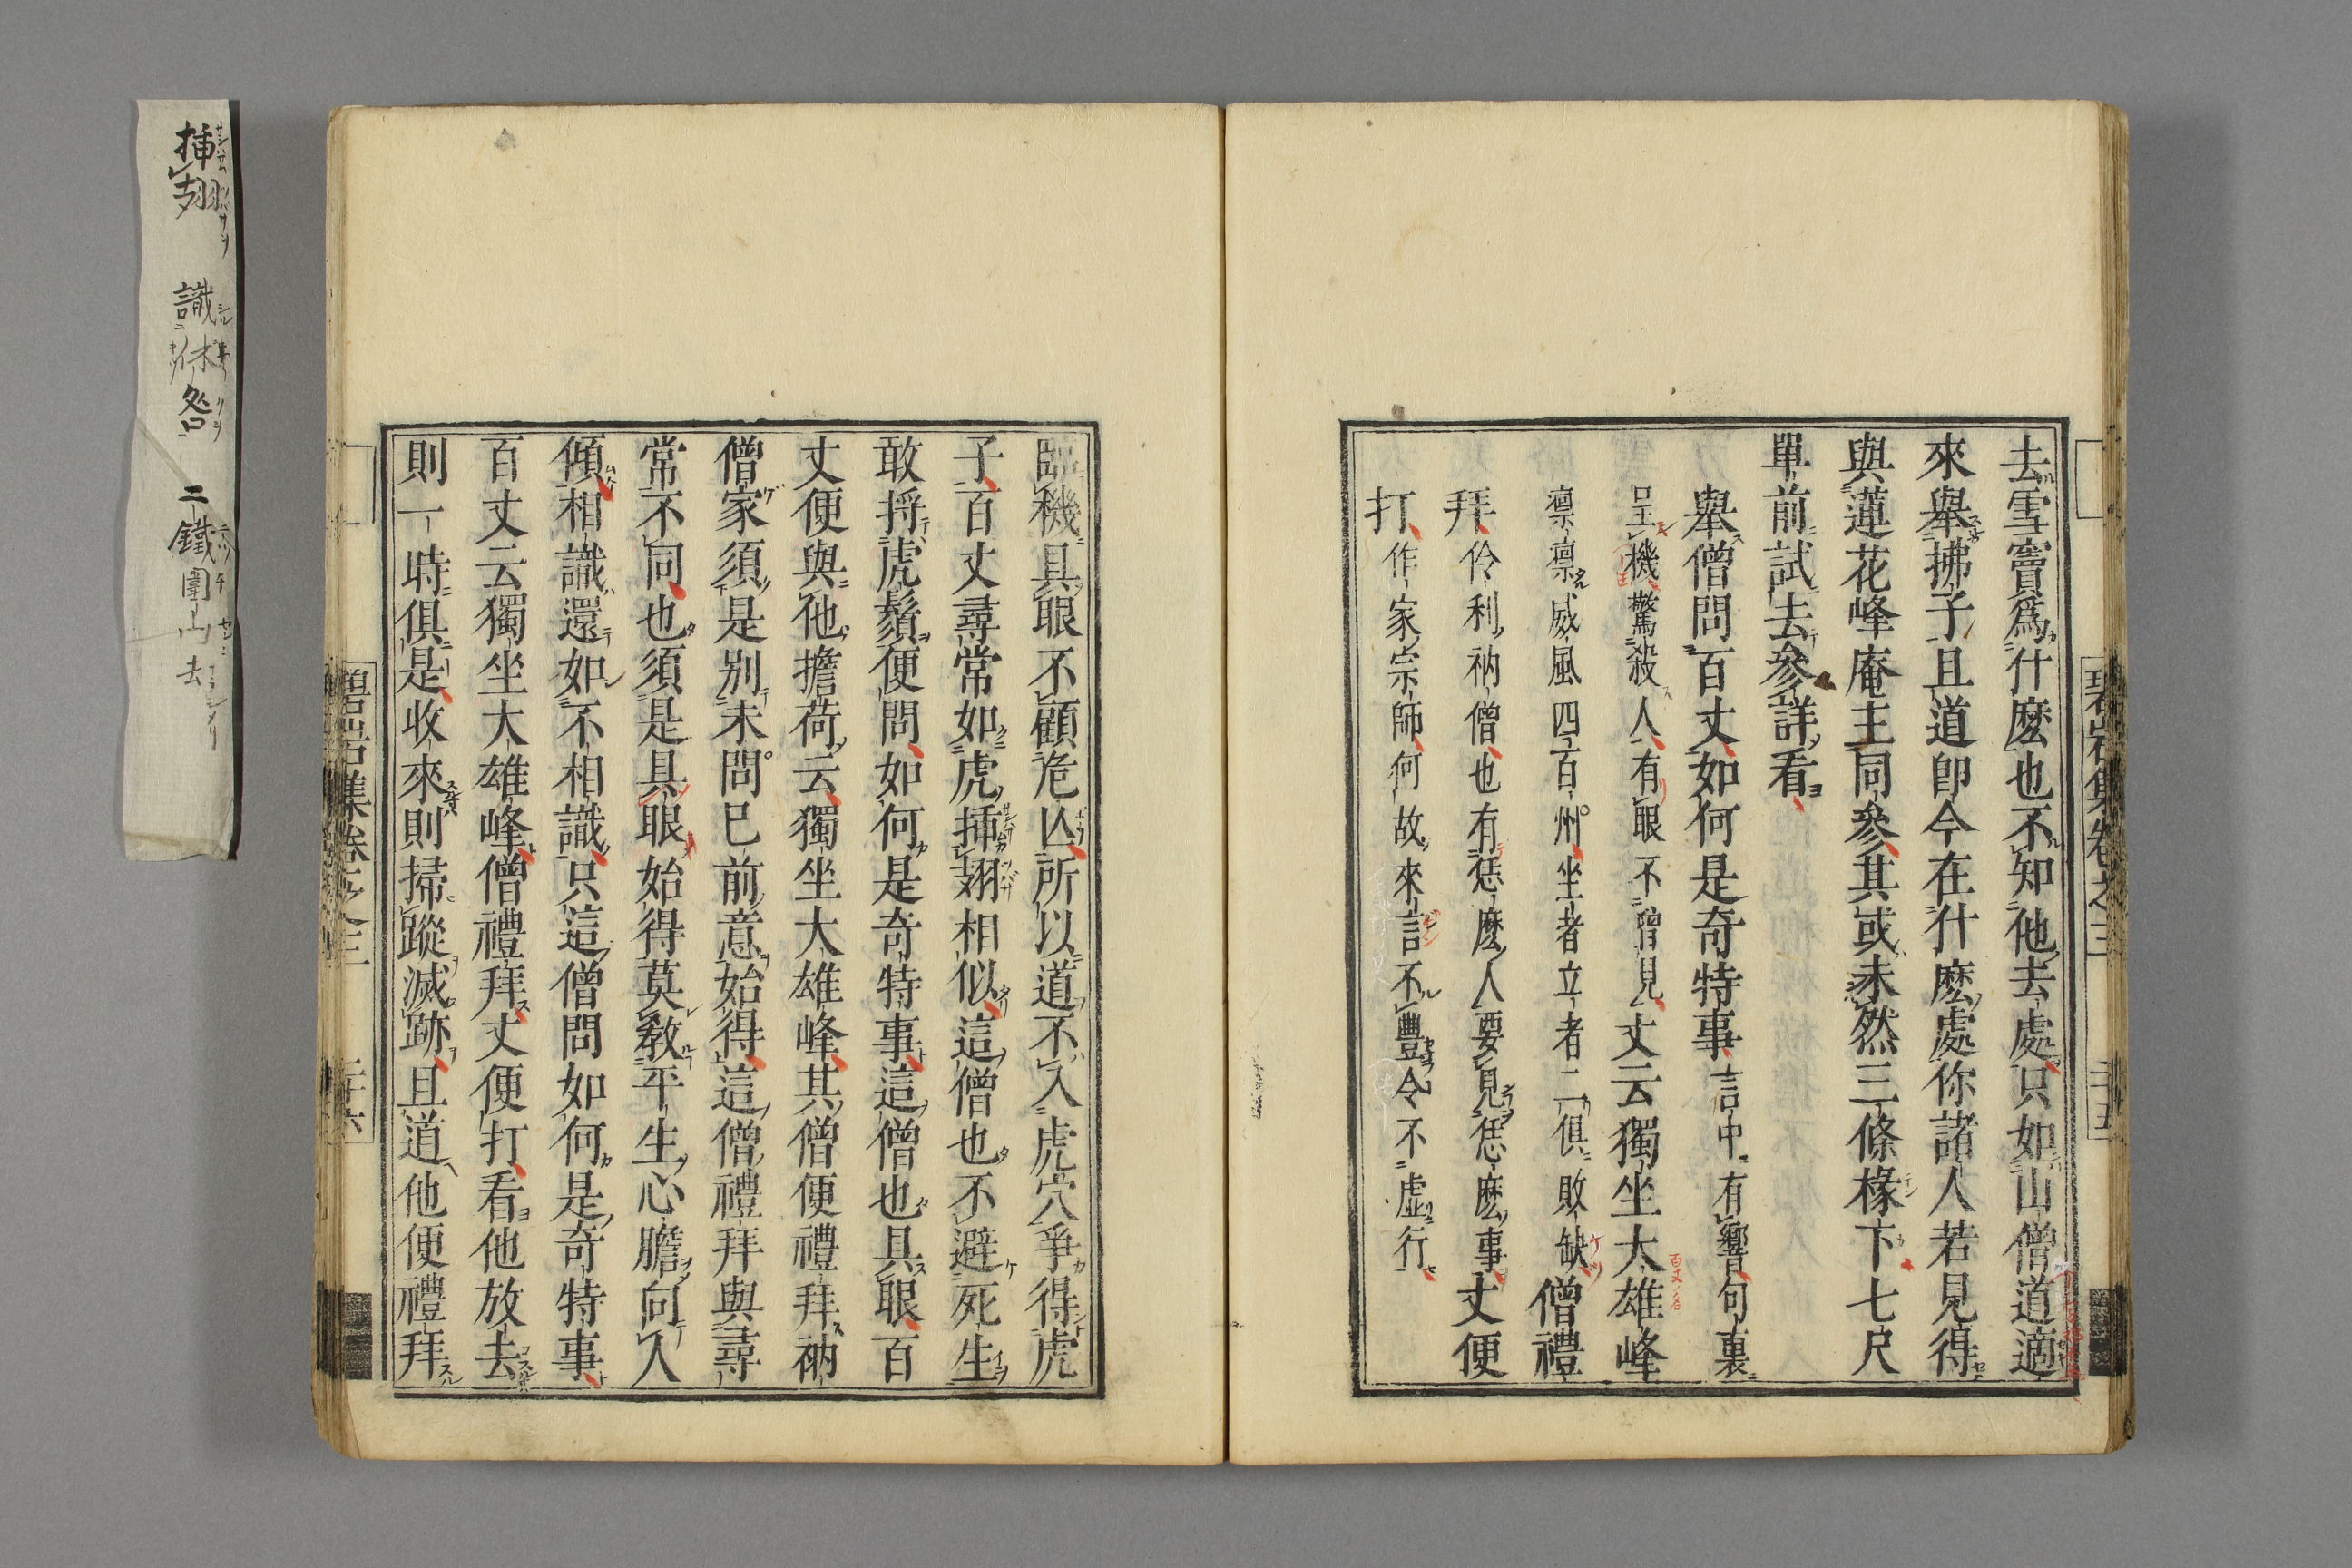 去雪竇爲什麼也不知他去處只如山僧道適
來舉拂子且道卽今在什麼處你諸人若見得
與蓮花峰庵主同參其或未然三條椽下七尺
單前試去參詳看
舉僧問百丈如何是奇特事言中有響句裏
呈機驚殺人有眼不曾見丈云獨坐大雄峰
凛凛威風四百州坐者立者二俱敗缺僧禮
拜伶利衲僧也有恁麼人要見恁麼事丈便
打作家宗師何故來言不豐令不虛行
臨機具眼不顧危亾所以道不入虎穴爭得虎
子百丈尋常如虎揷翅相似這僧也不避死生
敢捋虎鬚便問如何是奇特事這僧也具眼百
丈便與他擔荷云獨坐大雄峰其僧便禮拜衲
僧家須是別未問已前意始得這僧禮拜與尋
常不同也須是具眼始得莫教平生心膽向人
傾相識還如不相識只這僧問如何是奇特事
百丈云獨坐大雄峰僧禮拜丈便打看他放去
則一時俱是收來則掃蹤滅跡且道他便禮拜
碧岩集卷之三
二十五
碧岩集卷之三
二十六
揷翅 識休咎 二鐵圍山去